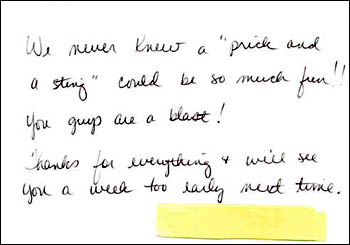 We never knew a "prick and
a sting" could be so much fun!!
You guys are a blast!
Thanks for everything & we'll see
you a week too early next time.